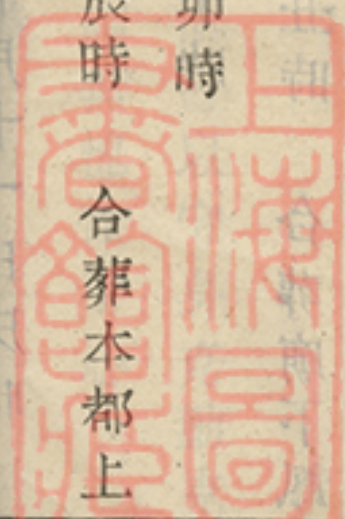 卯時
辰時 合葬本都上
上海圖
書館藏